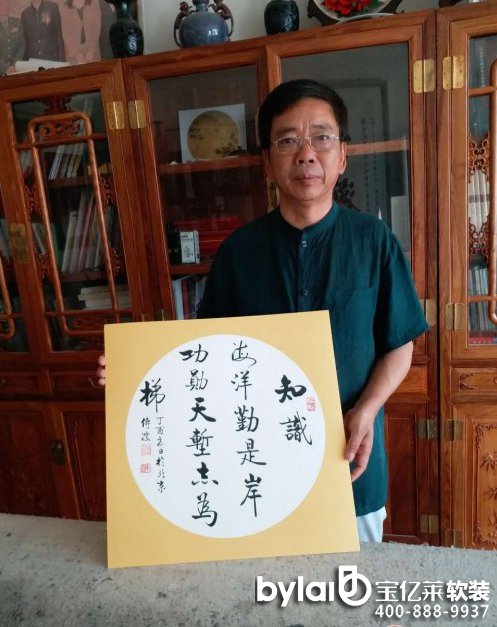 知識
海洋勤是岸
功勛天塹志為
梯
丁酉夏日於北京
bylai 宝亿莱软装
400-888-9937